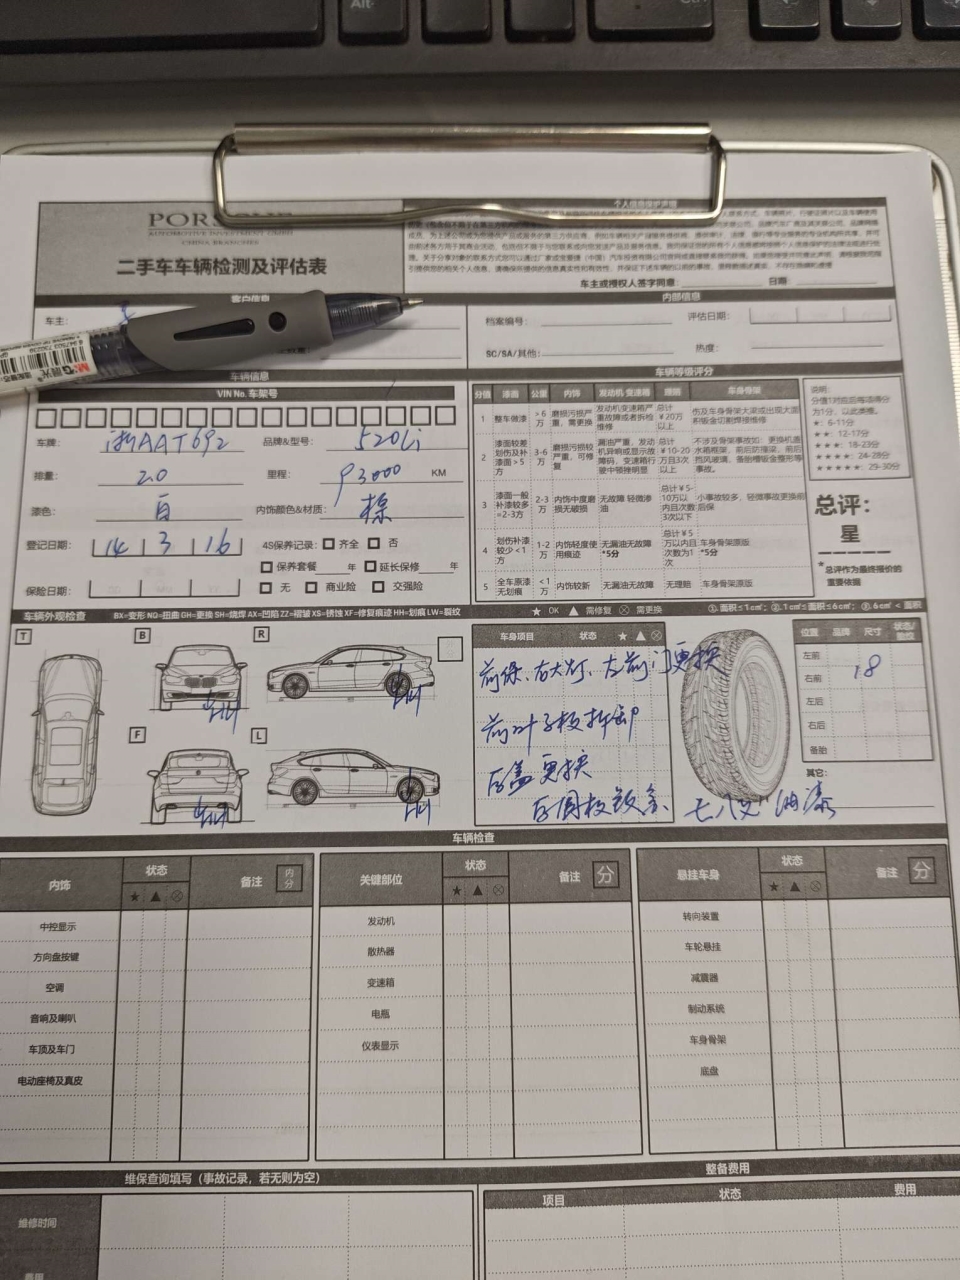 Alt
Ctrl
PORSCHE
AUTOMOTIVE INVESTMENT GMBH
CHINA BRANCHES
二手车车辆检测及评估表
个人信息保护声明
车主或授权人签字同意: 日期:
客户信息
内部信息
车主:
档案编号: 评估日期:
SC/SA/其他: 热度:
M&G 晨光
车辆信息
VIN No. 车架号
车牌: 浙AAT692 品牌&型号: 520Li
排量: 2.0 里程: 93000 KM
漆色: 白 内饰颜色&材质: 棕
登记日期: 14 3 16 4S保养记录: 齐全 否
保养套餐 年 延长保修 年
保险日期: 无 商业险 交强险
车辆等级评分
分值 漆面 公里 内饰 发动机 变速箱 理赔 车身骨架
1 整车做漆 >6万 磨损污损严重，需更换 发动机变速箱严重故障或者拆检维修 总计￥20万以上 伤及车身骨架大梁或出现大面积钣金切割焊接维修
2 漆面较差划伤及补漆面>5方 3-6万 磨损污损较严重，可修复 漏油严重，发动机异响或显示故障码，变速箱行驶中顿挫明显 总计￥10-20万且3次以上 不涉及骨架事故如：更换机盖水箱框架，前后防撞梁，前后挡风玻璃，备胎槽钣金整形等事故。
3 漆面一般补漆较多=2-3方 2-3万 内饰中度磨损无破损 无故障 轻微渗油 总计￥5-10万以内且次数3次以下 小事故较多，轻微事故更换前后保
4 划伤补漆较少<1方 1-2万 内饰轻度使用痕迹 无漏油无故障 *5分 总计￥5万以内且次数为1次 车身骨架原版 *5分
5 全车原漆无划痕 <1万 内饰较新 无漏油无故障 无理赔 车身骨架原版
说明:
分值1对应后每项得分为1分，以此类推。
★: 6-11分
★★: 12-17分
★★★: 18-23分
★★★★: 24-28分
★★★★★: 29-30分
总评:
星
★ 总评作为最终报价的重要依据
车辆外观检查 BX=变形 NQ=扭曲 GH=更换 SH=烧焊 AX=凹陷 ZZ=褶皱 XS=锈蚀 XF=修复痕迹 HH=划痕 LW=裂纹 ★ OK ▲ 需修复 ⊗ 需更换 ①.面积≤1c㎡; ②.1c㎡≤面积≤6c㎡; ③.6c㎡<面积
T B R
F L
HH HH
HH HH
车身项目 状态 ★ ▲ ⊗
前保、右大灯、左前门更换
前叶子板拆卸
后盖更换
后围板钣金、七八文油漆
位置 品牌 尺寸 状态/胎纹
左前
右前 18
左后
右后
备胎
其它:
车辆检查
内饰 状态 备注 内分 关键部位 状态 备注 分 悬挂车身 状态 备注 分
★ ▲ ⊗ ★ ▲ ⊗ ★ ▲ ⊗
中控显示 发动机 转向装置
方向盘按键 散热器 车轮悬挂
空调 变速箱 减震器
音响及喇叭 电瓶 制动系统
车顶及车门 仪表显示 车身骨架
电动座椅及真皮 底盘
维保查询填写（事故记录，若无则为空） 整备费用
项目 状态 费用
维修时间